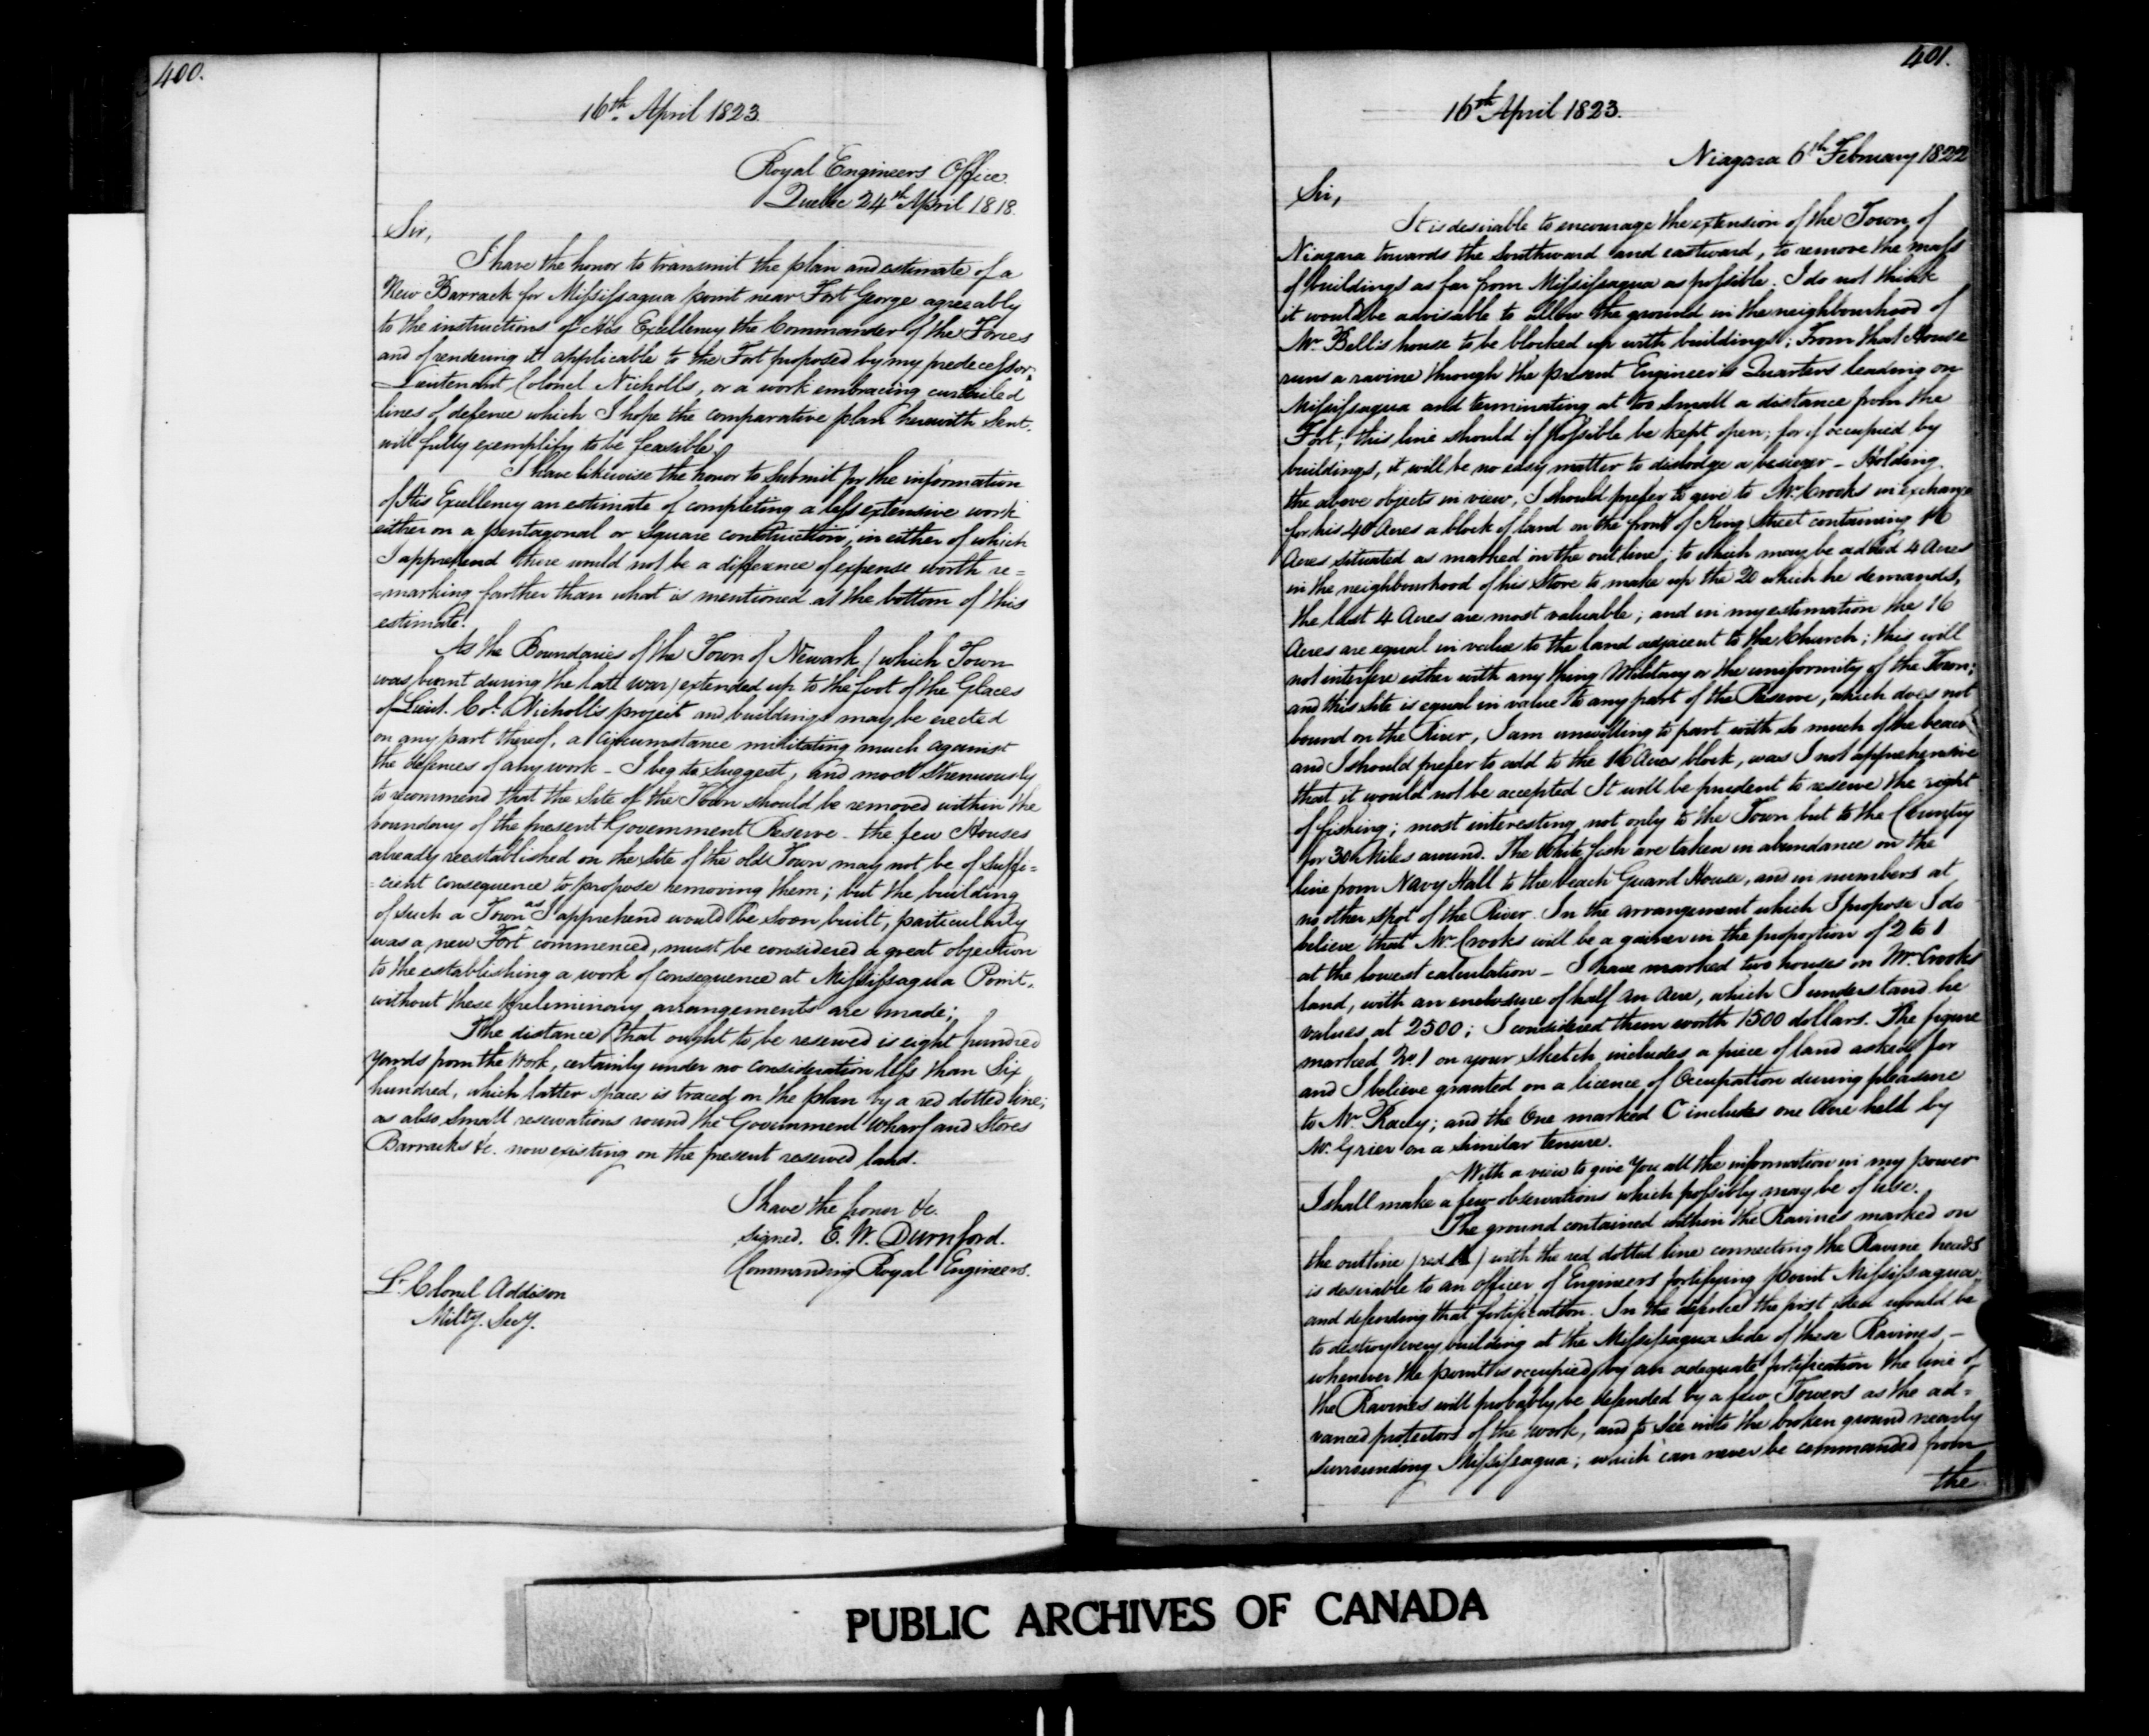 400.
16th. April 1823.
Royal Engineers Office.
Quebec 24th April 1818.
Sir,
I have the honor to transmit the plan and estimate of a
New Barrack for Missisaqua point near Fort George agreeably
to the instructions of His Excellency the Commander of the Forces
and of rendering it applicable to the Fort proposed by my predecessor,
Lieutenant Colonel Nicholls, or a work embracing curtailed
lines of defence which I hope the comparative plan herewith sent.
will fully exemplify to be feasible.
I have likewise the honor to submit for the information
of His Excellency an estimate of completing a less extensive work
either on a pentagonal or square construction, in either of which
I apprehend there would not be a difference of expense worth re=
=marking farther than what is mentioned at the bottom of this
estimate.
As the Boundaries of the Town of Newark / which Town
was burnt during the late war / extended up to the foot of the Glaces
of Lieut. Col. Nicholls project and buildings may be erected
on any part thereof, a circumstance militating much against
the defences of any work - I beg to suggest, and most strenuously
to recommend that the site of the Town should be removed within the
boundary of the present Government Reserve - the few Houses
already reestablished on the site of the old Town may not be of suffi=
=cient consequence to propose removing them; but the building
of such a Town as I apprehend would be soon built, particularly
was a new Fort commenced, must be considered a great objection
to the establishing a work of consequence at Missisaqua Point,
without these preliminary arrangements are made;
The distance that ought to be reserved is eight hundred
yards from the Work, certainly under no consideration less than Six
hundred, which latter space is traced on the plan by a red dotted line;
as also small reservations round the Government Wharf and Stores
Barracks &c. now existing on the present reserved land.
I have the honor &c.
signed. E. W. Durnford.
Commanding Royal Engineers.
Lt. Colonel Addison
Milty. Secy.
401.
16th April 1823.
Niagara 6th February 1822
Sir,
It is desirable to encourage the extension of the Town of
Niagara towards the Southward and eastward, to remove the mass
of buildings as far from Missisaqua as possible. I do not think
it would be advisable to allow the ground in the neighbourhood of
Mr. Bell's house to be blocked up with buildings; From that House
runs a ravine through the present Engineer's Quarters leading on
Missisaqua and terminating at too small a distance from the
Fort; this line should if possible be kept open; for if occupied by
buildings, it will be no easy matter to dislodge a besieger - Holding
the above objects in view, I should prefer to give to Mr. Crooks in exchange
for his 40 Acres a block of land on the front of King Street containing 16
Acres situated as marked in the outline; to which may be added 4 Acres
in the neighbourhood of his Store to make up the 20 which he demands,
the last 4 Acres are most valuable; and in my estimation the 16
Acres are equal in value to the land adjacent to the Church; this will
not interfere either with any thing Military or the uniformity of the Town;
and this site is equal in value to any part of the Reserve, which does not
bound on the River, I am unwilling to part with so much of the beach
and I should prefer to add to the 16 Acres block, was I not apprehensive
that it would not be accepted It will be prudent to reserve the right
of fishing; most interesting not only to the Town but to the Country
for 30 Miles around. The White fish are taken in abundance on the
line from Navy Hall to the beach Guard House, and in numbers at
no other spot of the River. In the arrangement which I propose I do
believe that Mr. Crooks will be a gainer in the proportion of 2 to 1
at the lowest calculation - I have marked two houses on Mr. Crooks
land, with an enclosure of half an Acre, which I understand he
values at 2500; I considered them worth 1500 dollars. The figure
marked No. 1 on your sketch includes a piece of land asked for
and I believe granted on a licence of Occupation during pleasure
to Mr. Racey; and the One marked C includes one Acre held by
Mr. Grier on a similar tenure.
With a view to give You all the information in my power
I shall make a few observations which possibly may be of use.
The ground contained within the Ravines marked on
the outline / red / with the red dotted line connecting the Ravine heads
is desirable to an officer of Engineers fortifying point Missisaqua;
and defending that fortification. In the defence the first idea would be
to destroy every building at the Missisaqua side of these Ravines, -
whenever the point is occupied by an adequate fortification the line of
the Ravines will probably be defended by a few Towers as the ad=
vanced protectors of the work, and to see into the broken ground nearly
surrounding Missisaqua; which can never be commanded from
the
PUBLIC ARCHIVES OF CANADA